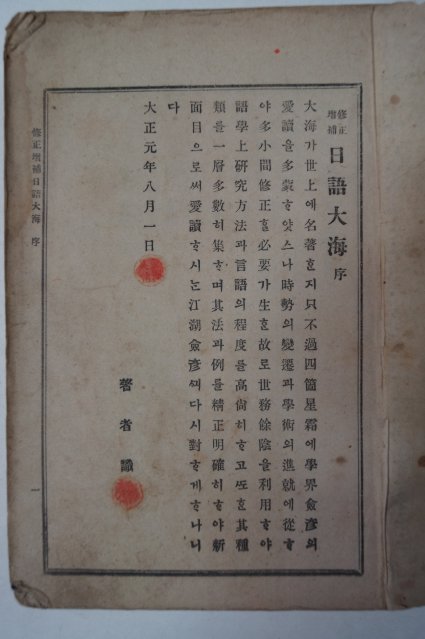 修正增補 日語大海 序
大海가世上에名著ᄒᆞᆫ지只不過四箇星霜에學界僉彦의
愛讀을多蒙ᄒᆞ얏스나時勢의變遷과學術의進就에從ᄒᆞ
야多小間修正ᄒᆞᆯ必要가生ᄒᆞᆫ故로世務餘陰을利用ᄒᆞ야
語學上硏究方法과言語의程度를高尙히ᄒᆞ고ᄯᅩᄒᆞᆫ其種
類를一層多數히集ᄒᆞ며其法과例를精正明確히ᄒᆞ야新
面目으로써愛讀ᄒᆞ시ᄂᆞᆫ江湖僉彦ᄭᅴ다시對ᄒᆞ게ᄒᆞ나니
다
大正元年八月一日
著者識
修正增補日語大海 序
一